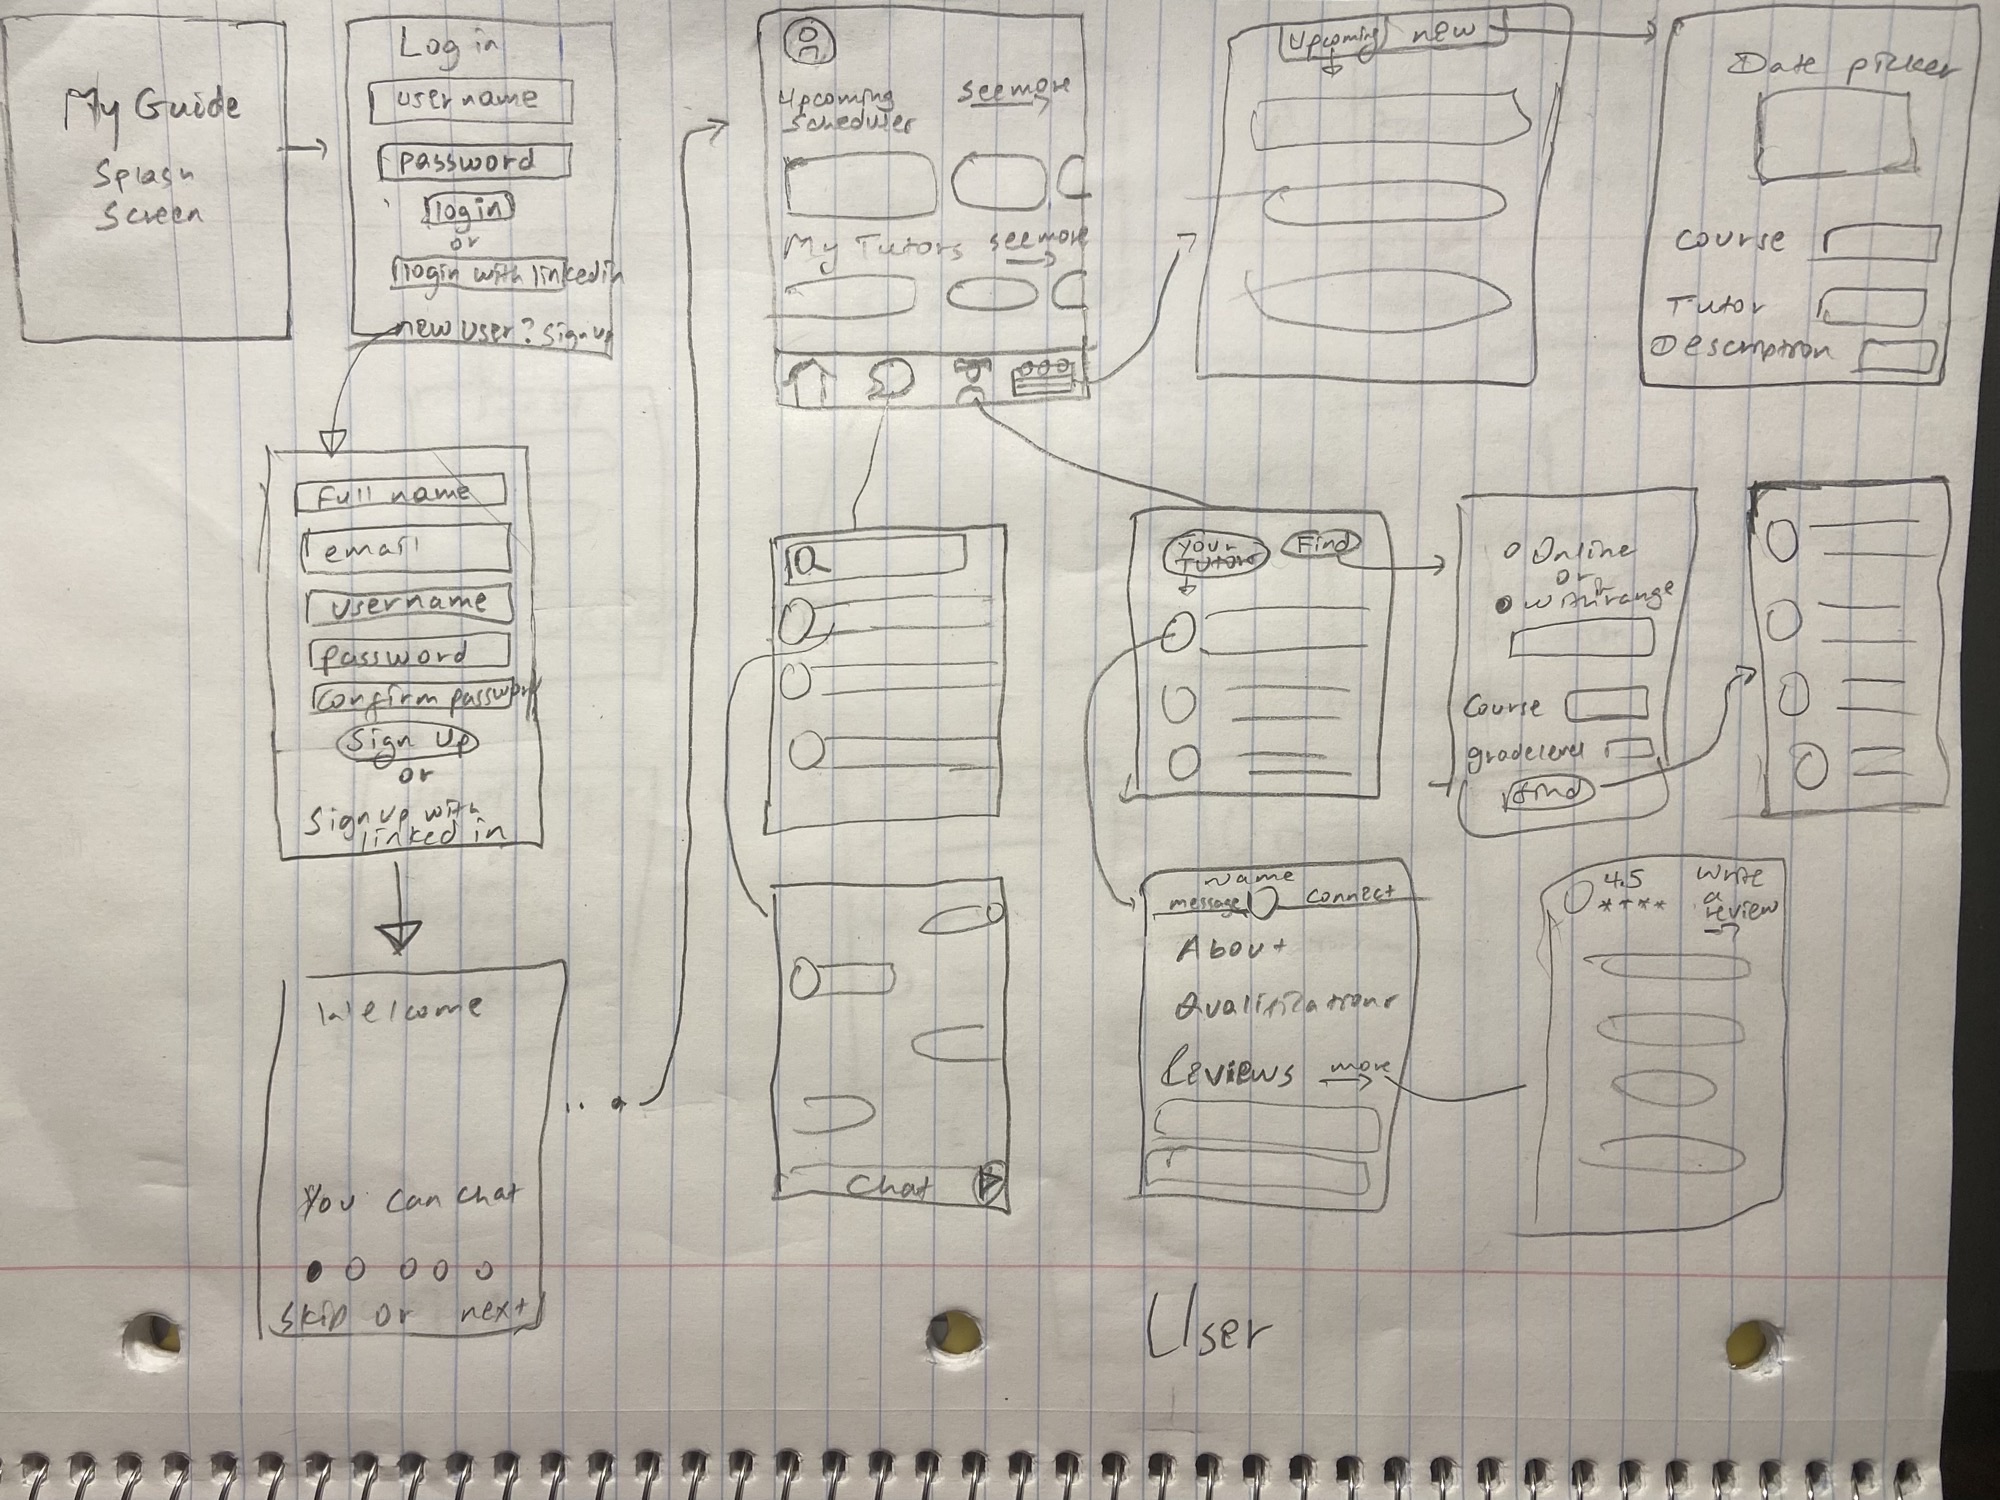 My Guide
Splash
Screen
Log in
username
password
login
or
login with linkedin
new user? Sign up
Full name
email
username
password
Confirm password
Sign Up
or
Sign up with
linked in
Welcome
You can chat
skip or next
Upcoming
see more
My Tutors
see more
Upcoming
new
Date picker
Course
Tutor
Description
Chat
Your
Tutors
Find
Online
or
Within range
Course
grade level
Find
Name
message
connect
About
Qualifications
Reviews
more
4.5
****
Write
a
review
User